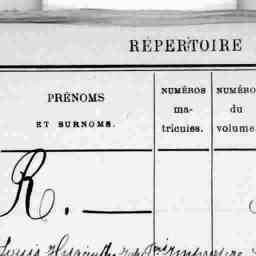 REPERTOIRE
PRÉNOMS
ET SURNOMS.
NUMÉROS
ma-
tricules.
NUMÉRO
du
volume
R.
Louis Hyacinthe